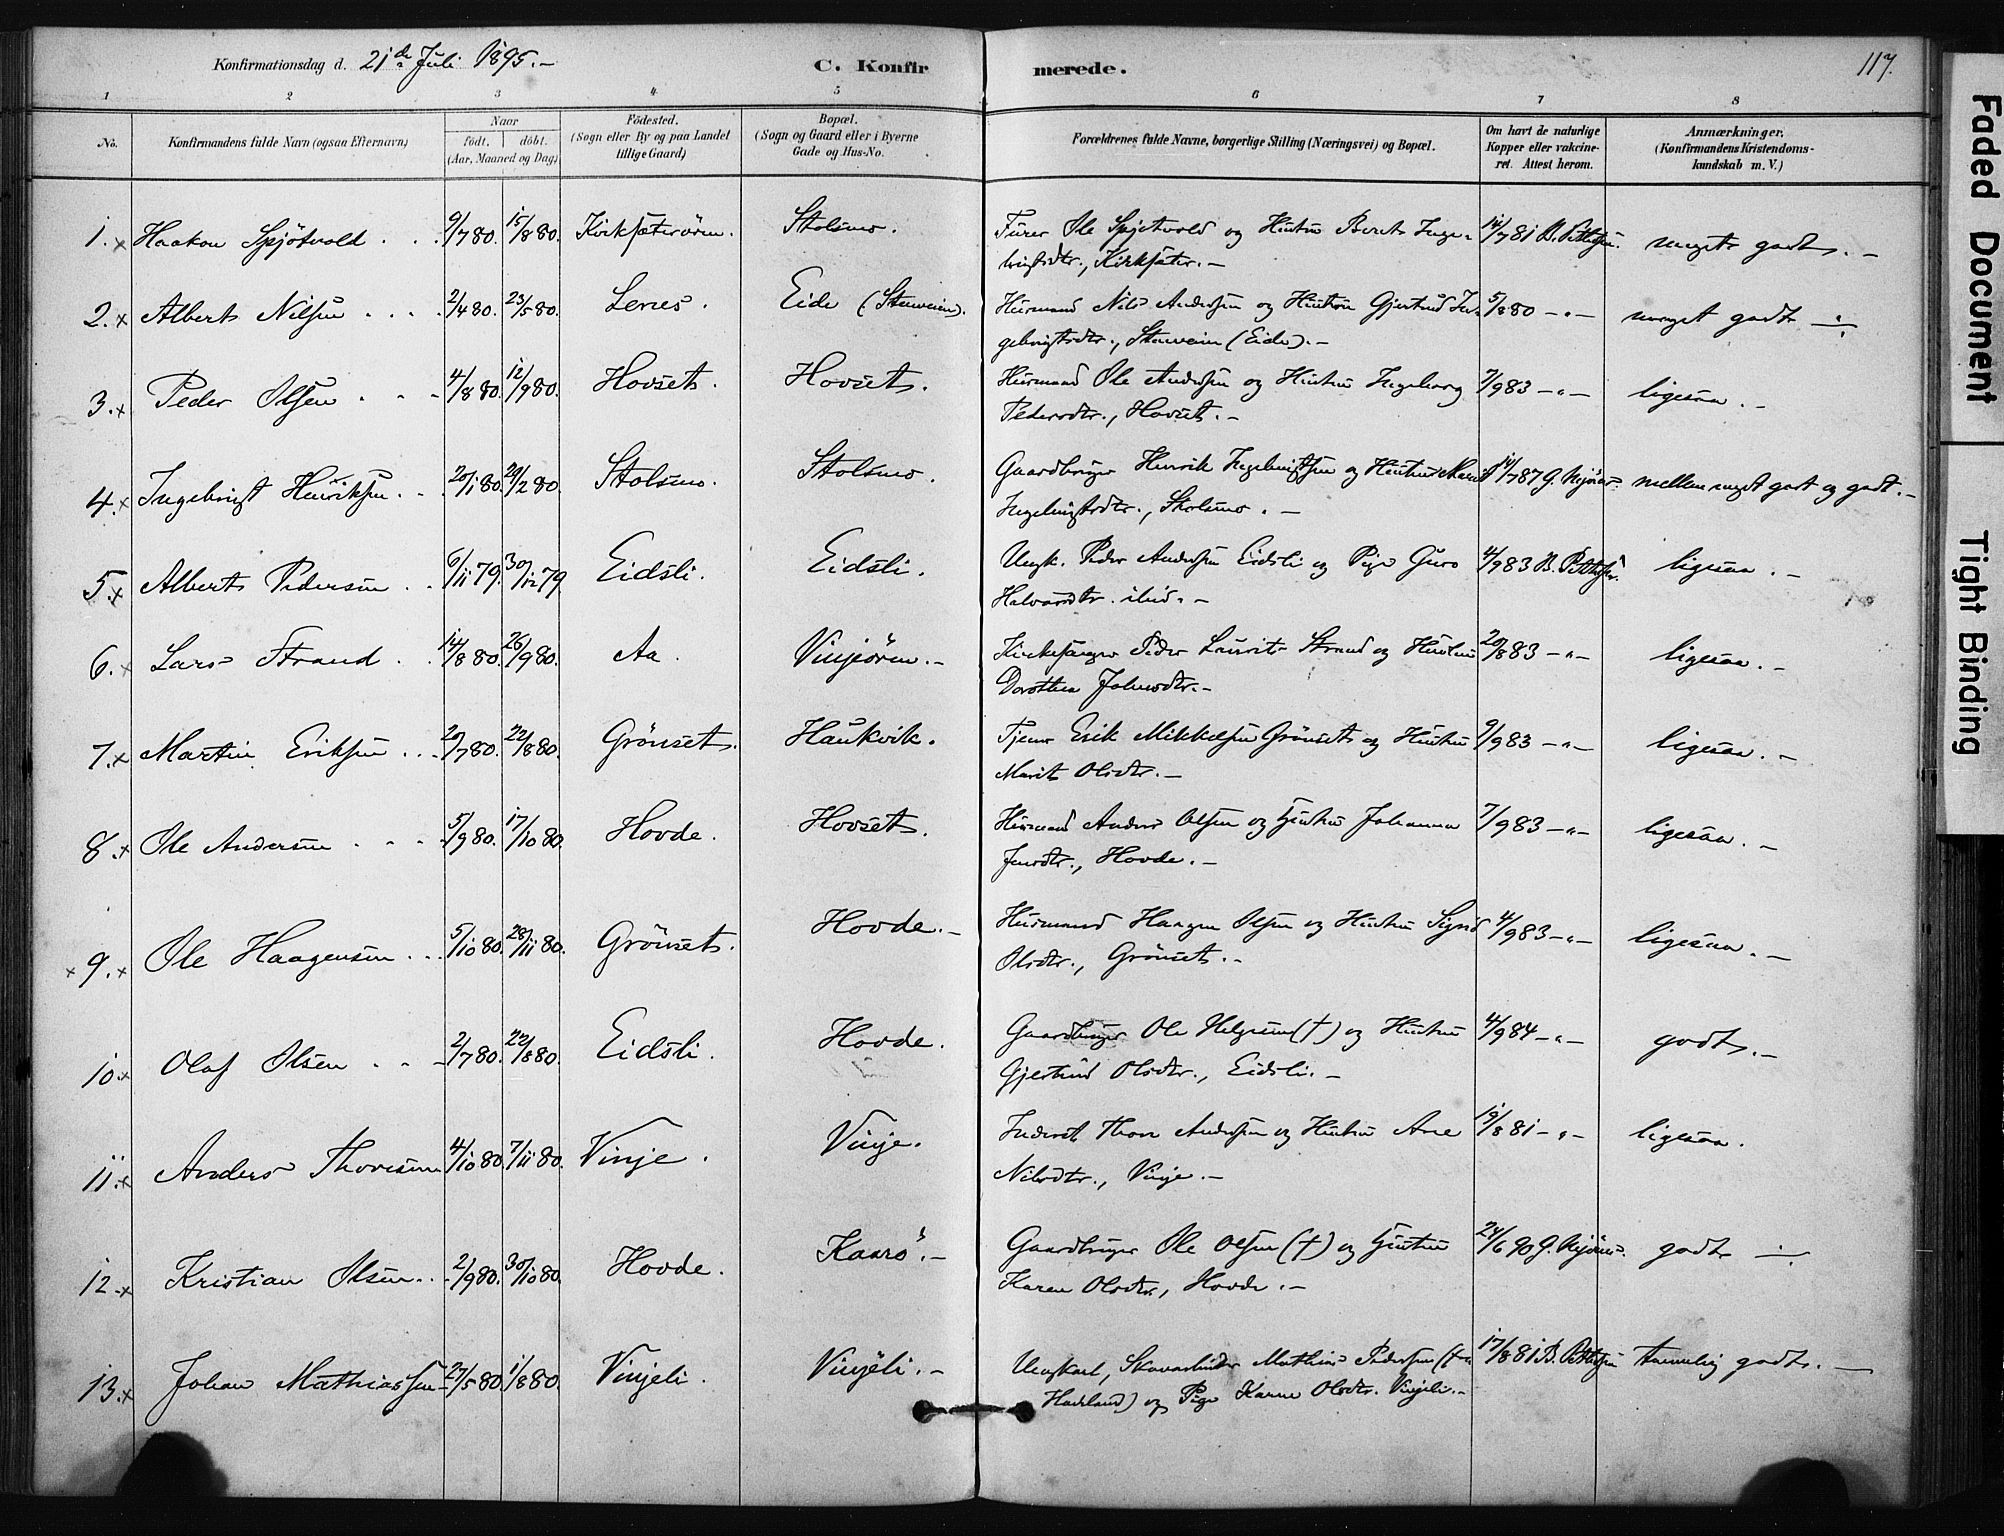 Konfirmationsdag d. 21de Juli 1895.-
C. Konfirmerede.
117.
1 2 3 4 5 6 7 8
No.
Konfirmandens fulde Navn (ogsaa Efternavn)
Naar
födt. döbt.
(Aar, Maaned og Dag)
Födested.
(Sogn eller By og paa Landet
tillige Gaard)
Bopæl.
(Sogn og Gaard eller i Byerne
Gade og Hus-No.
Forældrenes fulde Navne, borgerlige Stilling (Næringsvei) og Bopæl.
Om havt de naturlige
Kopper eller vakcine-
ret. Attest herom.
Anmærkninger.
(Konfirmandens Kristendoms-
kundskab m. V.)
1. x Haakon Spjötvold . . 9/7 80. 15/8 80. Kirksæterören. Stolsmo. Ole Spjötvold og Hustru Berit Inge- 14/7 81 meget godt. -
brigtsdtr., Kirksæter. -
2. x Albert Nilsen . . . 2/4 80. 23/5 80. Lenes. Eide Husmand Nils Andersen og Hustru Gjertrud In- 5/8 80 -"- meget godt
gebrigtsdtr., (Eide). -
3. x Peder Olsen . . . 4/8 80. 12/9 80. Hovset. Hovset. Husmand Ole Andersen og Hustru Ingeborg 7/9 83 -"- ligesaa. -
Pedersdtr., Hovset. -
4. x Ingebrigt Henriksen . . 20/1 80. 29/2 80. Stolsmo. Stolsmo. Gaardbruger Henrik Ingebrigtsen og Hustru Marit 14/7 87 mellem meget godt og godt. -
Ingebrigtsdtr., Stolsmo. -
5. x Albert Pedersen . . 6/11 79. 30/12 79 Eidsli. Eidsli. Ungk. Peder Andersen Eidsli og Pige Guro 4/9 83 ligesaa. -
Halvorsdtr. ibid. -
6. x Lars Strand . . 14/8 80. 26/9 80. Aa. Vinjeören. - Kirkesanger Peder Laurits Strand og Hustru 20/8 83 -"- ligesaa. -
Dorothea Johnsdtr. -
7. x Martin Eriksen . . . 20/7 80. 22/8 80. Grönset. Haukvik. Tjener Erik Mikkelsen Grönset og Hustru 9/9 83 -"- ligesaa. -
Marit Olsdtr. -
8. x Ole Andersen . . . 5/9 80. 17/10 80. Hovde. Hovset. Husmand Anders Olsen og Hustru Johanna 7/9 83 -"- ligesaa. -
Jensdtr., Hovde. -
x 9. x Ole Haagensen . . . 5/10 80. 28/11 80. Grönset. Hovde. - Husmand Haagen Olsen og Hustru Sigrid 4/9 83 -"- ligesaa. -
Olsdtr., Grönset. -
10. x Olaf Olsen . . 2/7 80. 22/8 80. Eidsli. Hovde. Gaardbruger Ole Helgesen (†) og Hustru 4/9 84 -"- godt. -
Gjertrud Olsdtr., Eidsli. -
11. x Anders Thoresen 4/10 80. 7/11 80. Vinje. Vinje. Inderst Thore Andersen og Hustru Ane 19/8 81 -"- ligesaa.
Nilsdtr., Vinje. -
12. x Kristian Olsen . . 2/9 80. 30/10 80. Hovde. Kaarö. - Gaardbruger Ole Olsen (†) og Hustru 24/6 90 godt
Karen Olsdtr., Hovde. -
13. x Johan Mathiassen 27/5 80. 1/8 80. Vinjeli. Vinjeli. - Ungkarl, Skovarbeider Mathias Pedersen 17/8 81 temmelig godt. -
Hadeland) og Pige Karen Olsdtr. Vinjeli. -
Faded Document
Tight Binding